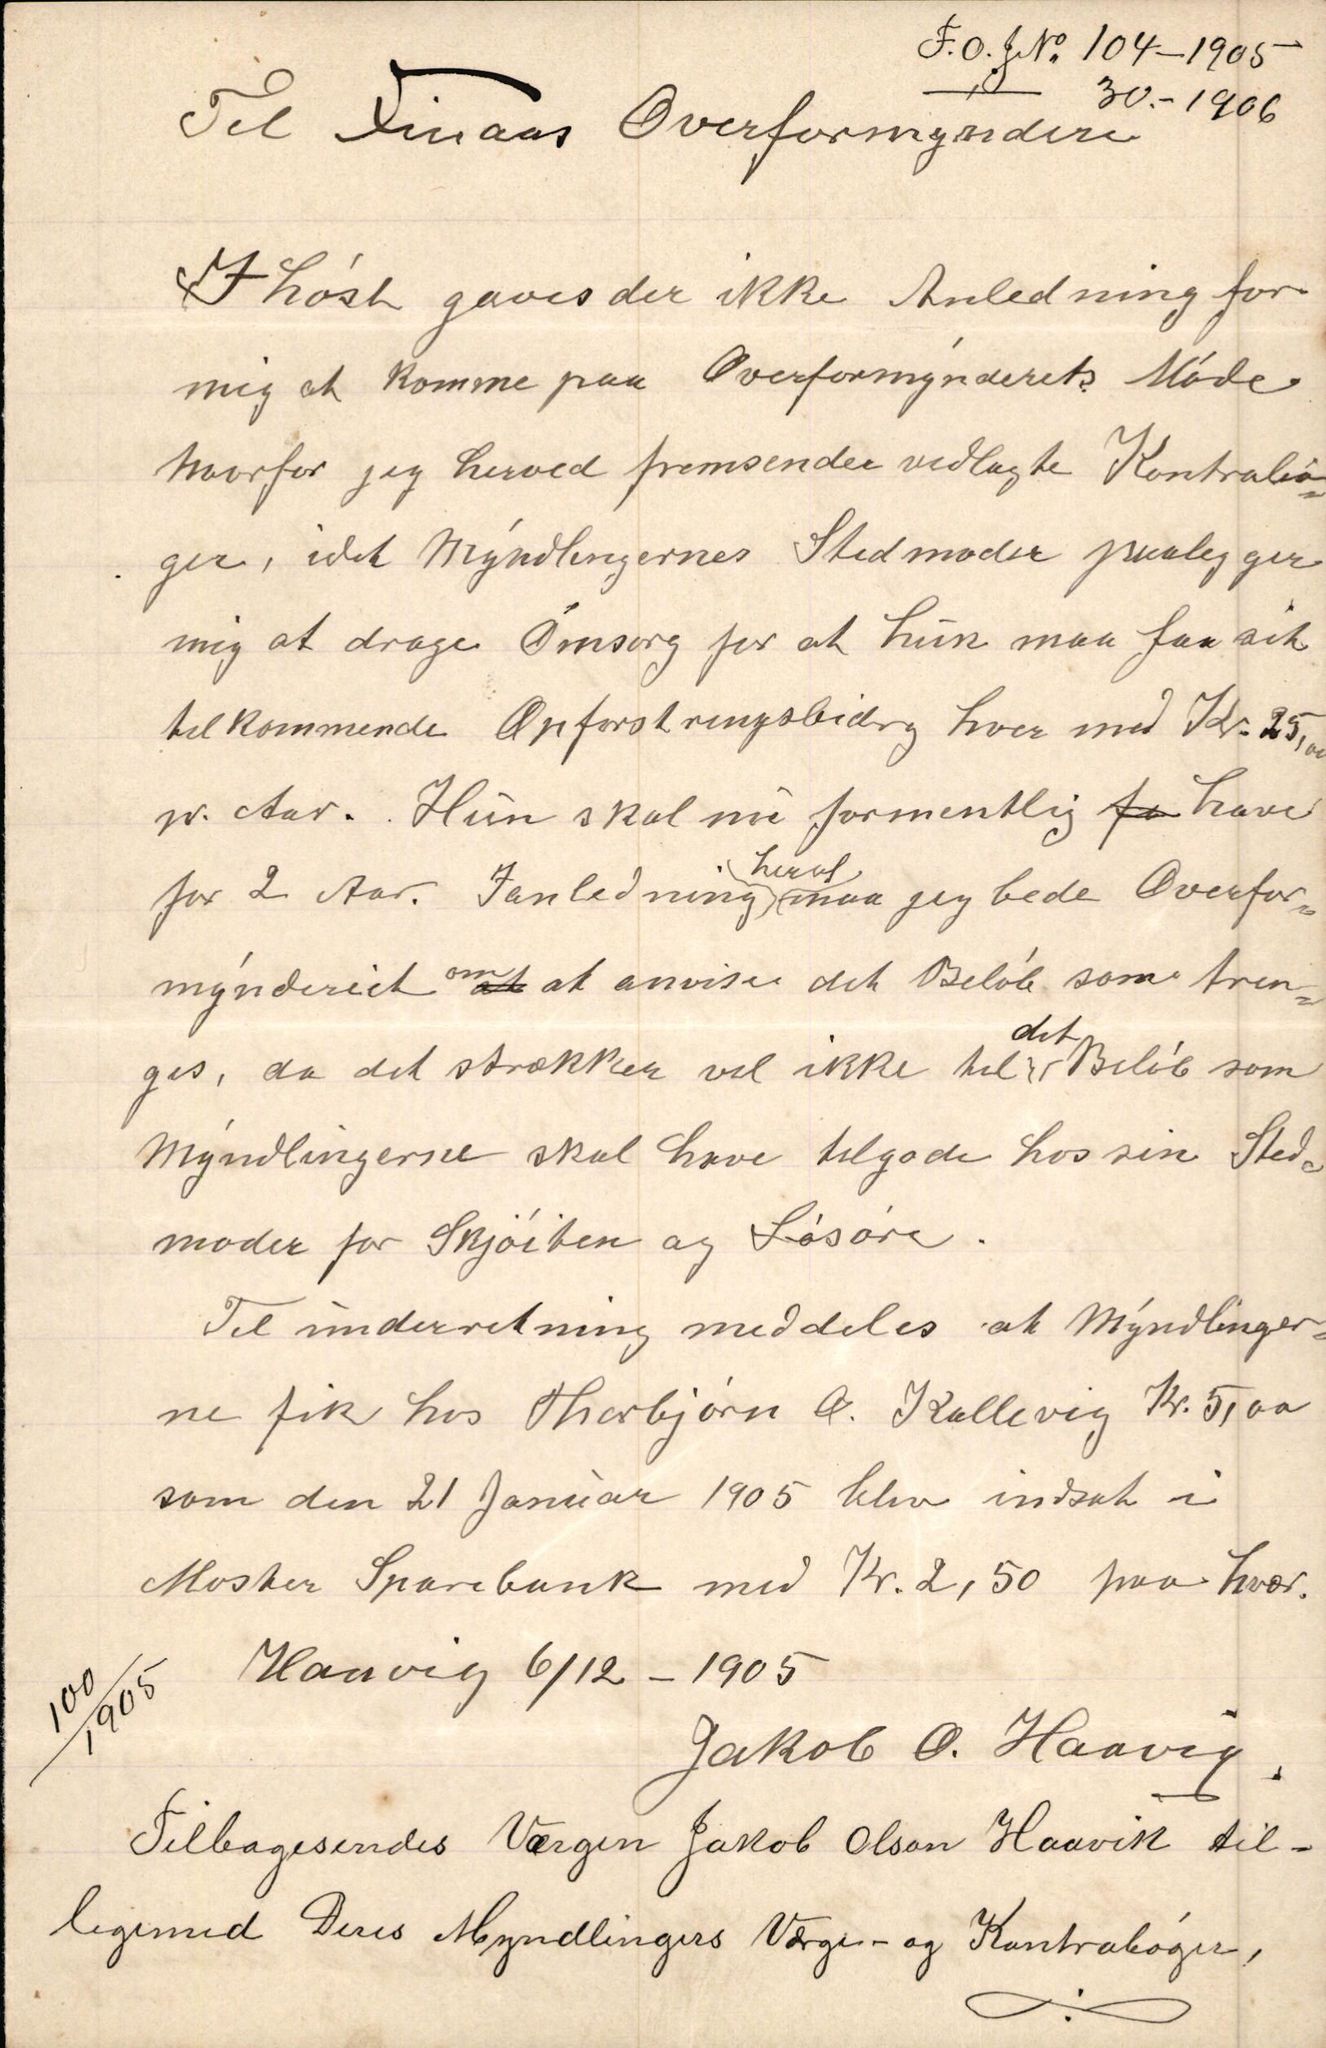 F.O.J№. 104-1905
30.-1906
Til Finaas Overformynderi
I høst gaves der ikke Anledning for
mig at komme paa Overformynderets Møde
hvorfor jeg herved fremsender vedlagte Kontrabø=
ger, idet Myndlingernes Stedmoder paalegger
mig at drage Omsorg for at hun maa faa sit
tilkommende Opfostringsbidrg hver med Kr. 25,00
pr. Aar. Hun skal nu formentlig fa have
for 2 Aar. Ianledning heraf maa jeg bede Overfor=
mynderiet om at at anvise det Beløb som tren=
ges, da det strækker vel ikke til det Beløb som
Myndlingerne skal have tilgode hos sin Sted=
moder for Skjøiten og Løsøre.
Til underretning meddeles at Myndlinger=
ne fik hos Thorbjørn O. Kallevig Kr. 5,00
som den 21 Januar 1905 blev indsat i
Moster Sparebank med Kr. 2,50 paa hver.
Haavig 6/12 - 1905
100/1905
Jakob O. Haavig.
Tilbagesendes Værgen Jakob Olson Haavik til-
ligemed Deres Myndlingers Værge- og Kontrabøger,